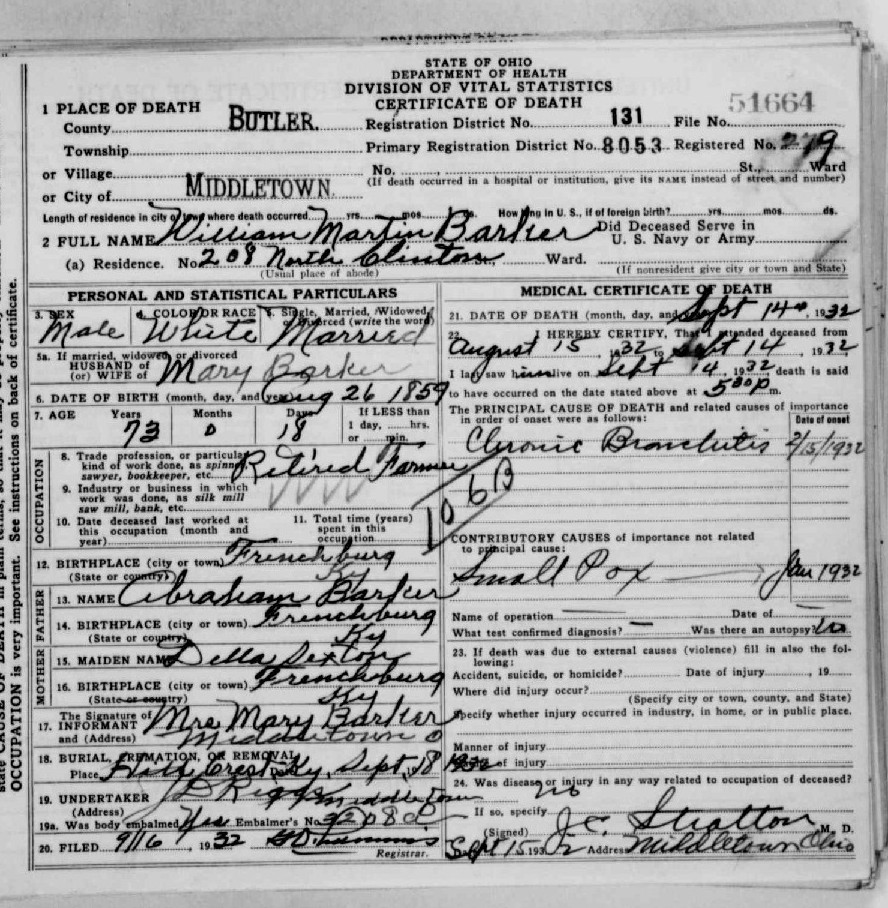 STATE OF OHIO
DEPARTMENT OF HEALTH
DIVISION OF VITAL STATISTICS
CERTIFICATE OF DEATH
51664
1 PLACE OF DEATH
County BUTLER. Registration District No. 131 File No.
Township Primary Registration District No. 8053 Registered No. 279
or Village No. , St., Ward
(If death occurred in a hospital or institution, give its NAME instead of street and number)
or City of MIDDLETOWN.
Length of residence in city or town where death occurred yrs. mos. ds. How long in U. S., if of foreign birth? yrs. mos. ds.
2 FULL NAME William Martin Barker Did Deceased Serve in
U. S. Navy or Army
(a) Residence. No. 208 North Clinton St., Ward.
(Usual place of abode) (If nonresident give city or town and State)
PERSONAL AND STATISTICAL PARTICULARS
3. SEX 4. COLOR OR RACE 5. Single, Married, Widowed,
Divorced (write the word)
Male White Married
5a. If married, widowed, or divorced
HUSBAND of
(or) WIFE of Mary Barker
6. DATE OF BIRTH (month, day, and year) Aug 26 1859
7. AGE Years Months Days If LESS than
1 day, hrs.
or min.
73 0 18
OCCUPATION
8. Trade, profession, or particular
kind of work done, as spinner,
sawyer, bookkeeper, etc. Retired Farmer
9. Industry or business in which
work was done, as silk mill
saw mill, bank, etc.
10. Date deceased last worked at
this occupation (month and
year)
11. Total time (years)
spent in this
occupation
12. BIRTHPLACE (city or town) Frenchburg
(State or country) Ky
FATHER
13. NAME Abraham Barker
14. BIRTHPLACE (city or town) Frenchburg
(State or country) Ky
MOTHER
15. MAIDEN NAME Della Sexton
16. BIRTHPLACE (city or town) Frenchburg
(State or country) Ky
17. The Signature of
INFORMANT Mrs Mary Barker
and (Address) Middletown O
18. BURIAL, CREMATION, OR REMOVAL
Place Crest Ky, Date Sept 18 1932
19. UNDERTAKER
(Address) Middletown
19a. Was body embalmed Yes Embalmer's No.
20. FILED 9/16 1932
Registrar.
MEDICAL CERTIFICATE OF DEATH
21. DATE OF DEATH (month, day, and year) Sept 14th, 1932
22. I HEREBY CERTIFY, That I attended deceased from
August 15, 1932 to Sept 14, 1932
I last saw him alive on Sept 14, 1932, death is said
to have occurred on the date stated above at 500 p m.
The PRINCIPAL CAUSE OF DEATH and related causes of importance
in order of onset were as follows:
Date of onset
Chronic Bronchitis 2/15/1932
106B
CONTRIBUTORY CAUSES of importance not related
to principal cause:
Small Pox Jan 1932
Name of operation Date of
What test confirmed diagnosis? Was there an autopsy? No
23. If death was due to external causes (violence) fill in also the fol-
lowing:
Accident, suicide, or homicide? Date of injury , 19
Where did injury occur?
(Specify city or town, county, and State)
Specify whether injury occurred in industry, in home, or in public place.
Manner of injury
Nature of injury
24. Was disease or injury in any way related to occupation of deceased?
no
If so, specify
(Signed) J C Stratton M. D.
Sept 15 1932 Address Middletown Ohio
OCCUPATION is very important. See instructions on back of certificate.